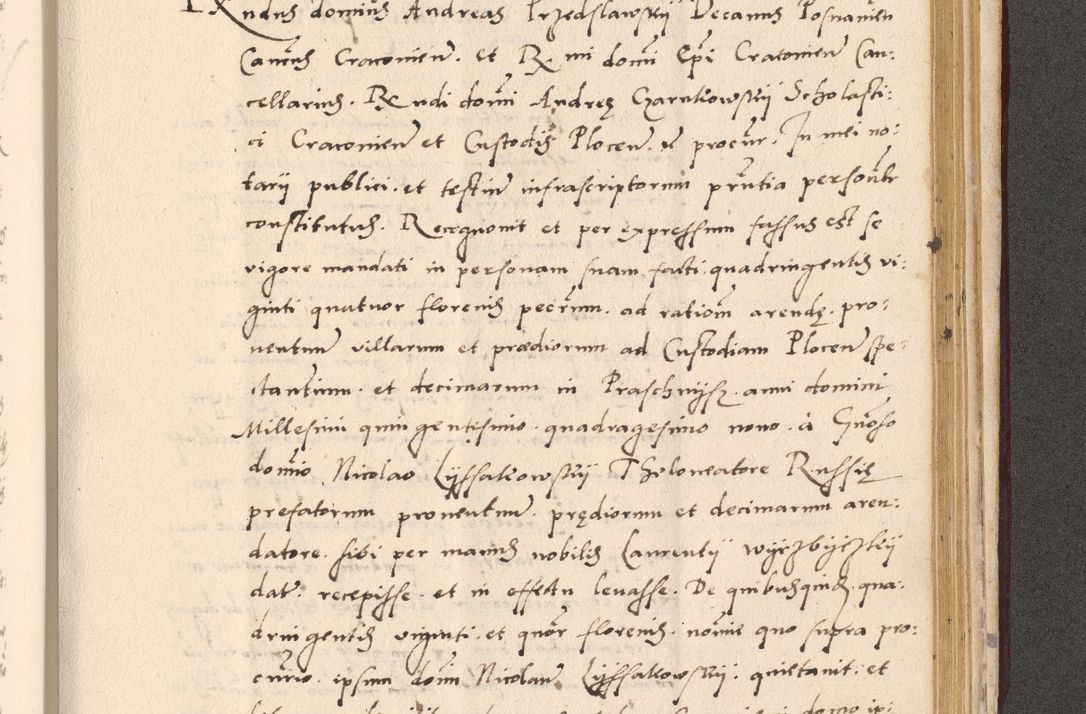 Rndus dominus Andreas Przedslawskÿ Decanus Posnanien
Canons Cracovien. et Rmi domi Epi Cracovien Can:
cellarius. Rndi domi Andreę Czarnkowskÿ Scholasti:
ci Cracovien et Custodis Plocen. procur. In mei no:
tarÿ publici. et testium infrascriptorum pntia personlr
constitutus. Recognovit et per expressum fassus est se
vigore mandati in personam suam facti quadringentis vi:
ginti quatuor florenis pecrum. ad rationem arendę. pro:
ventum villarum et prædiorum ad Custodiam Plocen spe:
ctantium. et decimarum in Praschnÿsz. anni domini
Millesimi quingentisimo. quadragesimo nono. à Gnoso
domino Nicolao Lÿssakowskÿ Tholoneatore Russię
prefatorum proventum. prędiorum et decimarum aren:
datore. sibi per manus nobilis Laurentÿ
datar. recepisse. et in effectu levasse. De quibusquidem. qua:
dringentis viginti. et quor florenis. nomine quo supra pro:
curio. ipsum domi Nicolaum Lÿssakowskÿ. quietavit. et